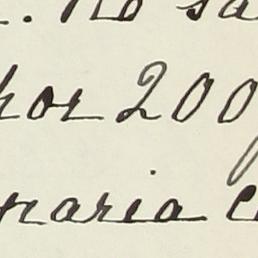 . No sa
por 200
naria c